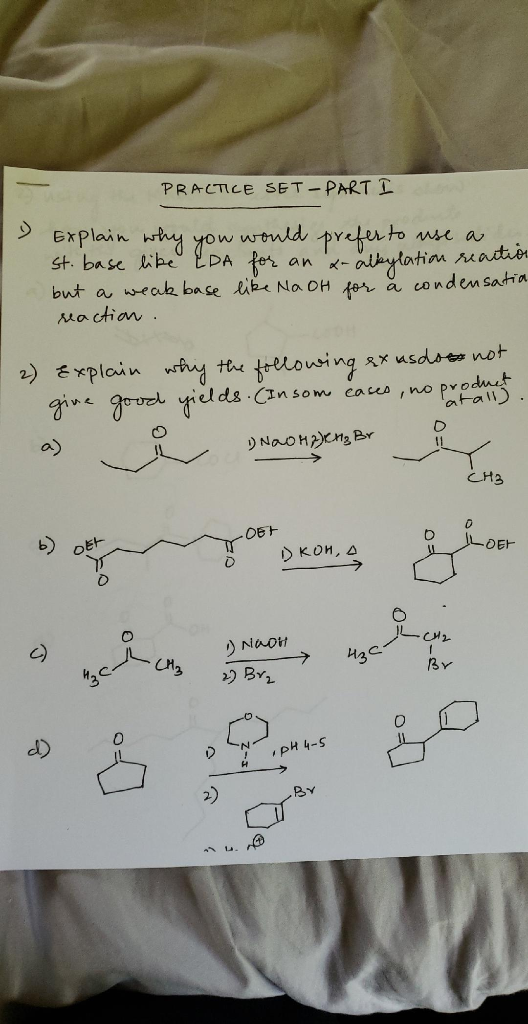 PRACTICE SET - PART I
1) Explain why you would prefer to use a
st. base like LDA for an α-alkylation reaction
but a weak base like NaOH for a condensatio
reaction.
2) Explain why the following rxns do not
give good yields. (In som cases, no product
at all).
a) O 1) NaOH 2) CH3Br O
CH3
b) OEt O OEt O 1) KOH, Δ O O OEt
c) H3C O CH3 1) NaOH 2) Br2 H3C O CH2 Br
d) O 1) O N H , pH 4-5 O
2) Br